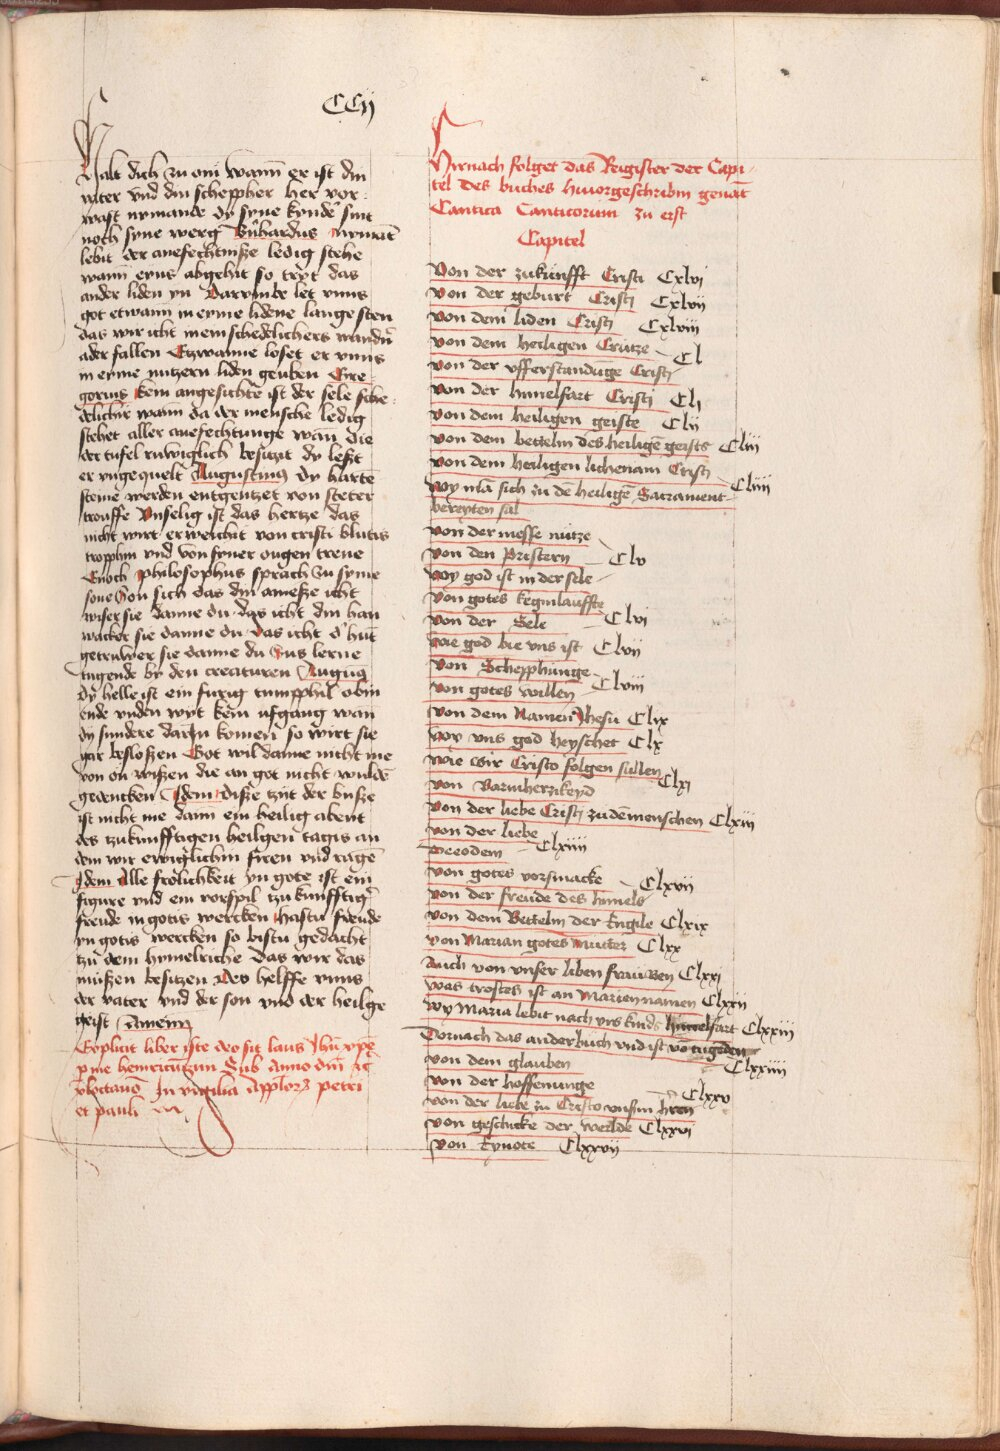 CCij
Halt dich zu om wann er ist din
vater vnd din scheppher her vor
wast nymande dy syne kynde sint
noch syne werg Bernhardus Nymāt
lebit der anefechtnisze ledig stehe
wann eyns abgehit so tryt das
ander liden yn Darvmbe let vnns
got etwann in eyme lidene lange sten
das wir icht in ein schedelichers wandn̄
ader fallen Etzwanne loset er vnns
in eyme nutzern liden geuben Gre
gorius kein angesichte ist der sele sche
delichir wann da der mensche ledig
stehet aller anefechtunge wan die
der tufel ruwiglich besitzt dy leszt
er vngequelt Augustinus Dy hartē
steine werden entgentzet von steter
trouffe Vnselig ist das hertze das
nicht wirt erweichit von cristi blutis
tropphin vnd von syner ougen trene
Enoch philosophus sprach zu syme
sone Son sich das din amesze icht
wiser sie danne du das icht din han
wacker sie danne du Das icht d' hūt
getruwer sie danne du Vns lerne
tugende by den creaturen Augu9
Dy helle ist ein furig tumpphil obin
ende vnden wyt kein vfgang wan
dy sundere daryn komen so wirt sie
gar beslossen Got wil danne nicht me
von on wiszen die an got nicht wuldē
gedencken Idem Disze tzijt der busze
ist nicht me dann ein heilig abent
des tzukunfftigen heilgen tagis an
dem wir ewiglichin firen vnd ragē
Idem Alle frolichkeit yn gote ist ein
figure vnd ein vorspil tzukunfftig'
freude in gotis wercken hastu freude
yn gotis wercken so bistu gedacht
tzu dem hymelriche Das wir das
muszen besitzen Des helffe vnns
der vater vnd der son vnd der heilge
geist Amenn
Explicit liber iste deo sit laus Jhū xp̄e
p me henricu Sub Anno dm̄ rc̄
xloctauo In vigilia Applor petri
et pauli
Hirnach folget das Reigister der Capi
tel des buches hiuorgeschribin genāt
Cantica Canticorum zu erst
Capitel
Von der zukunfft Cristi Cxlvi
von der geburt Cristi Cxlvij
von dem liden Cristi Cxlviij
von dem heiligen Crutze Cl
von der vfferstandūge Cristi
von der himelfart Cristi Clj
von dem heiligen geiste Clij
von dem betteln des heiligē geists Cliij
von dem heiligen lichenam Cristi
wy mā sich zu dē heiligē Sacrament Cliiij
bereyten sal
von der messe nutze
von den Pristern Clv
wy god ist in der sele
von gotes kegenlauffte
von der Sele Clvi
wie god bie vns ist Clvij
von Schepphunge
von gotes willen Clviij
von dem Namen Jhesu Clix
wor vns god heyschet Clx
wie wir Cristo folgen sullen
von Barmherzikeyd Clxj
von der liebe Cristi zu dē menschen Clxiij
von der liebe
Weeodem Clxiiij
von gotes vorsmacke Clxvij
von der freude des himels
von dem Betteln der Engile Clxix
von Marian gotes Mutter Clxx
Auch von vnser liben frauwen Clxxj
was trostes ist an Marien namen Clxxij
wy Maria lebit nach yrs kinds himelfart Clxxiij
Dornach das ander buch vnd ist vō tugeden
von dem glauben Clxxiiij
von der hoffenunge
von der liebe zu Cristo vnsm hren Clxxv
von geschicke der werlde Clxxvi
von Tynote Clxxvij